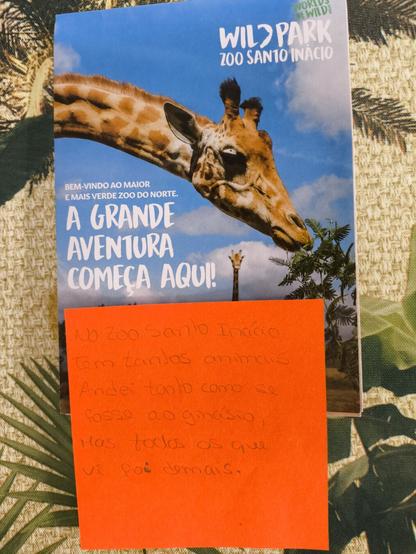 WORLDS
of WILD!
WILDPARK
ZOO SANTO INÁCIO
BEM-VINDO AO MAIOR
E MAIS VERDE ZOO DO NORTE.
A GRANDE
AVENTURA
COMEÇA AQUI!
No Zoo Santo Inácio
Tem tantos animais
Andei tanto como se
fosse ao ginásio,
Mas todos os que
vi foi demais.